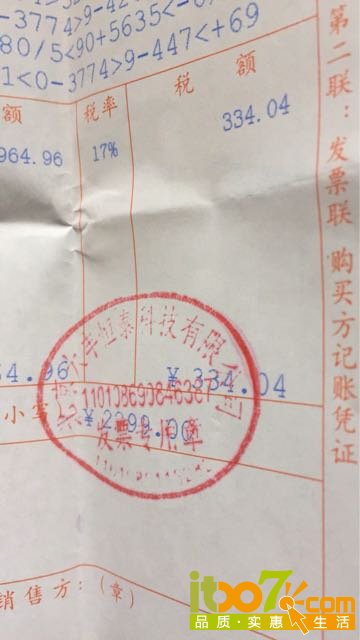 -3774>9-42
80/5<90+5635<-6
1<0-3774>9-447<+69
额 税率 税 额
964.96 17% 334.04
54.96 ¥ 334.04
小写 ¥2299.00
恒泰科技有限公司
发票专用章
销售方:(章)
第二联:发票联 购买方记账凭证
it007.com
品质·实惠 生活